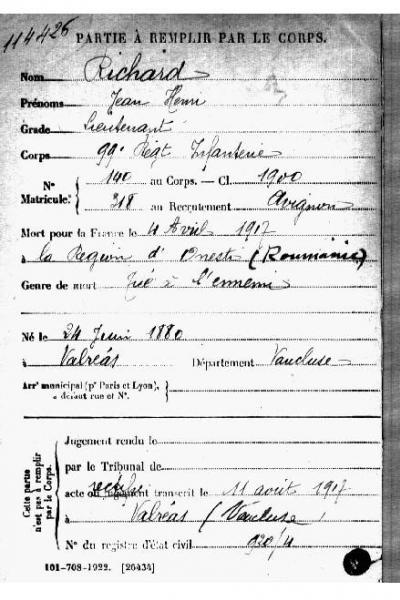 114426
PARTIE À REMPLIR PAR LE CORPS.
Nom Richard
Prénoms Jean Henri
Grade Lieutenant
Corps 99e Régt Infanterie
No Matricule. 140 au Corps. — Cl. 1900
318 au Recrutement Avignon
Mort pour la France le 4 Avril 1917
à la Région d'Onesti (Roumanie)
Genre de mort Tué à l'ennemi
Né le 24 Juin 1880
à Valréas Département Vaucluse
Arrt municipal (pr Paris et Lyon), à défaut rue et No.
Cette partie n'est pas à remplir par le Corps.
Jugement rendu le
par le Tribunal de
acte ou jugement transcrit le 11 août 1917
à Valréas (Vaucluse)
No du registre d'état civil 920/4
101-708-1922. [26434]